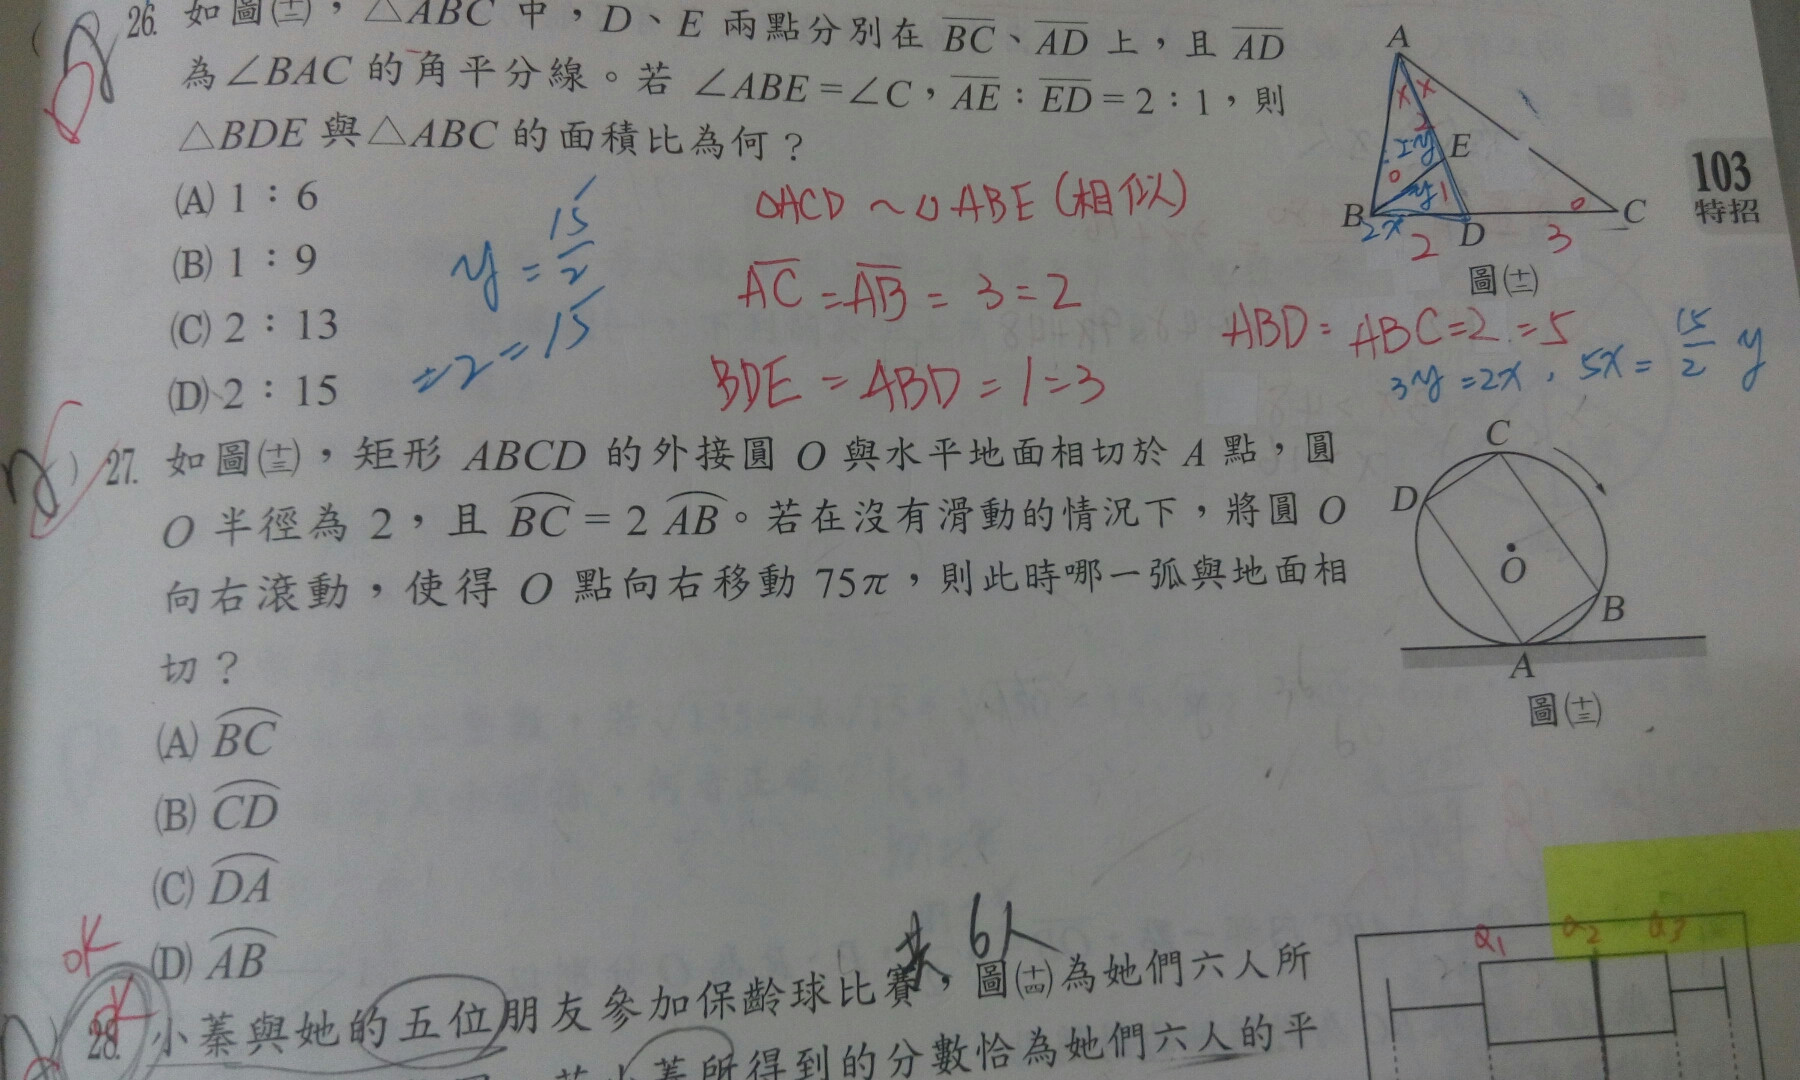 26. 如圖(十二),△ABC 中,D、E 兩點分別在 BC、AD 上,且 AD
為∠BAC 的角平分線。若 ∠ABE=∠C,AE:ED=2:1,則
△BDE 與△ABC 的面積比為何?
(A) 1:6
(B) 1:9
(C) 2:13
(D) 2:15
y = 15/2
= 2 = 15
△ACD ~ △ABE (相似)
AC = AB = 3 = 2
BDE = ABD = 1 = 3
ABD = ABC = 2 = 5
3y = 2x , 5x = 15/2 y
A
x x
2
2y
E
y 1
B
2x
2
D
3
C
圖(十二)
103
特招
27. 如圖(十三),矩形 ABCD 的外接圓 O 與水平地面相切於 A 點,圓
O 半徑為 2,且 BC = 2 AB。若在沒有滑動的情況下,將圓 O
向右滾動,使得 O 點向右移動 75π,則此時哪一弧與地面相
切?
(A) BC
(B) CD
(C) DA
(D) AB
C
D
O
B
A
圖(十三)
ok
共 6人
28. 小蓁與她的五位朋友參加保齡球比賽,圖(十四)為她們六人所
得到的分數恰為她們六人的平
Q1 Q2 Q3